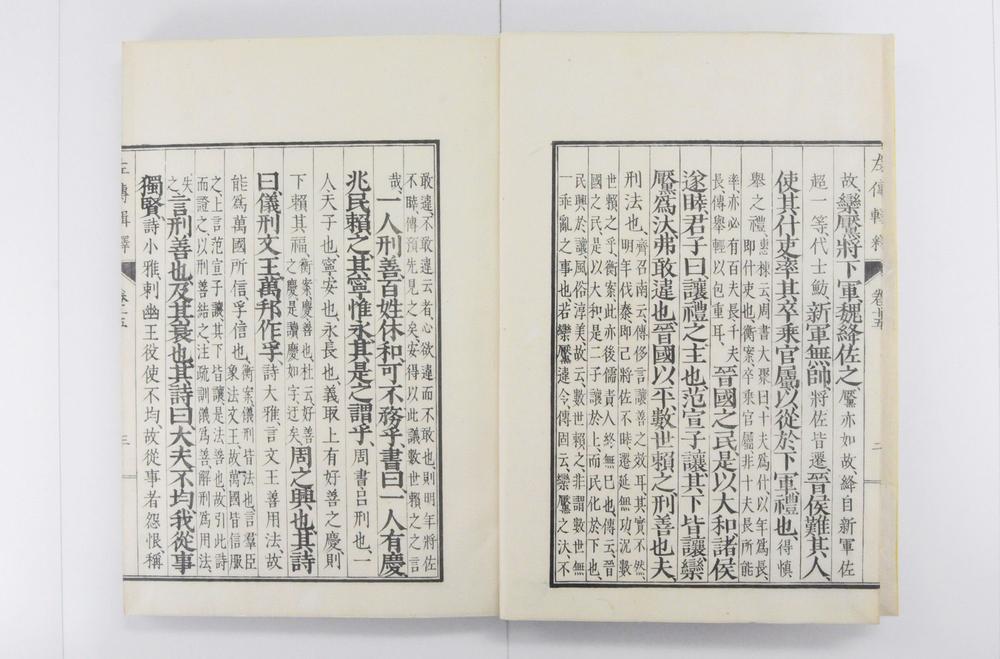 左傳輯釋 卷十五 二
故、欒黶將下軍、魏絳佐之、黶亦如故、絳自新軍佐
超一等、代士魴、新軍無帥、將佐皆遷、晉侯難其人、
使其什吏率其卒乘官屬、以從於下軍、禮也、得慎
舉之禮、
惠棟云、周書大聚曰、十夫爲什、以年爲長、
即什吏也、衡案、卒乘官屬、非十夫長所能
率、亦必有百夫長千夫
長、傳舉輕以包重耳、
晉國之民、是以大和、諸侯
遂睦、君子曰、讓禮之主也、范宣子讓、其下皆讓、欒
黶爲汏、弗敢違也、晉國以平、數世賴之、刑善也夫、
刑法也、
齊召南云、傳侈言讓善之效耳、其實不然、
明年伐秦、即己將佐不睦、遷延無功、況數
世賴之乎、衡案、此亦後儒責人終無已也、傳云、晉
國之民、是以大和、是二子讓於上、而民化於下也、
民興於讓、風俗淳美、故云、數世賴之、非謂數世無
一乖亂之事也、若欒黶違令、傳固云、欒黶之汏、不
敢違、不敢違云者、心欲違而不敢也、則明年將佐
不睦、傳預先見之矣、安得以此議數世賴之之言
哉、一人刑善、百姓休和、可不務乎、書曰、一人有慶
兆民賴之、其寧惟永、其是之謂乎、周書呂刑也、一
人天子也、寧安也、永長也、義取上有好善之慶、則
下賴其福、
衡案、慶善也、杜云、好善
之慶、是讀慶如字、迂矣、
周之興也、其詩
曰、儀刑文王、萬邦作孚、詩大雅、言文王善用法、故
能爲萬國所信、孚信也、
衡案、儀刑皆法也、言羣臣
象法文王、故萬國皆信服
之、上言范宣子讓、其下皆讓、是法善也、故引此詩
而證之、以刑善結之、注疏訓儀爲善、解刑爲用法、
失
之、
言刑善也、及其衰也、其詩曰、大夫不均、我從事
獨賢、詩小雅、刺幽王役使不均、故從事者怨恨、稱
左傳輯釋 卷十五 三